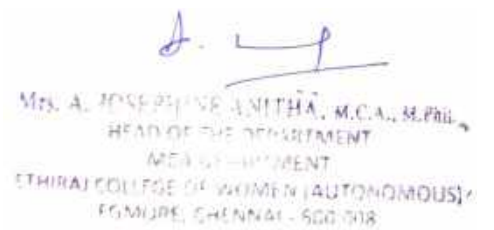 Mrs. A. JOSEPHINE ANITHA, M.C.A., M.Phil.,
HEAD OF THE DEPARTMENT
MCA DEPARTMENT
ETHIRAJ COLLEGE OF WOMEN (AUTONOMOUS)
EGMORE, CHENNAI - 600 008